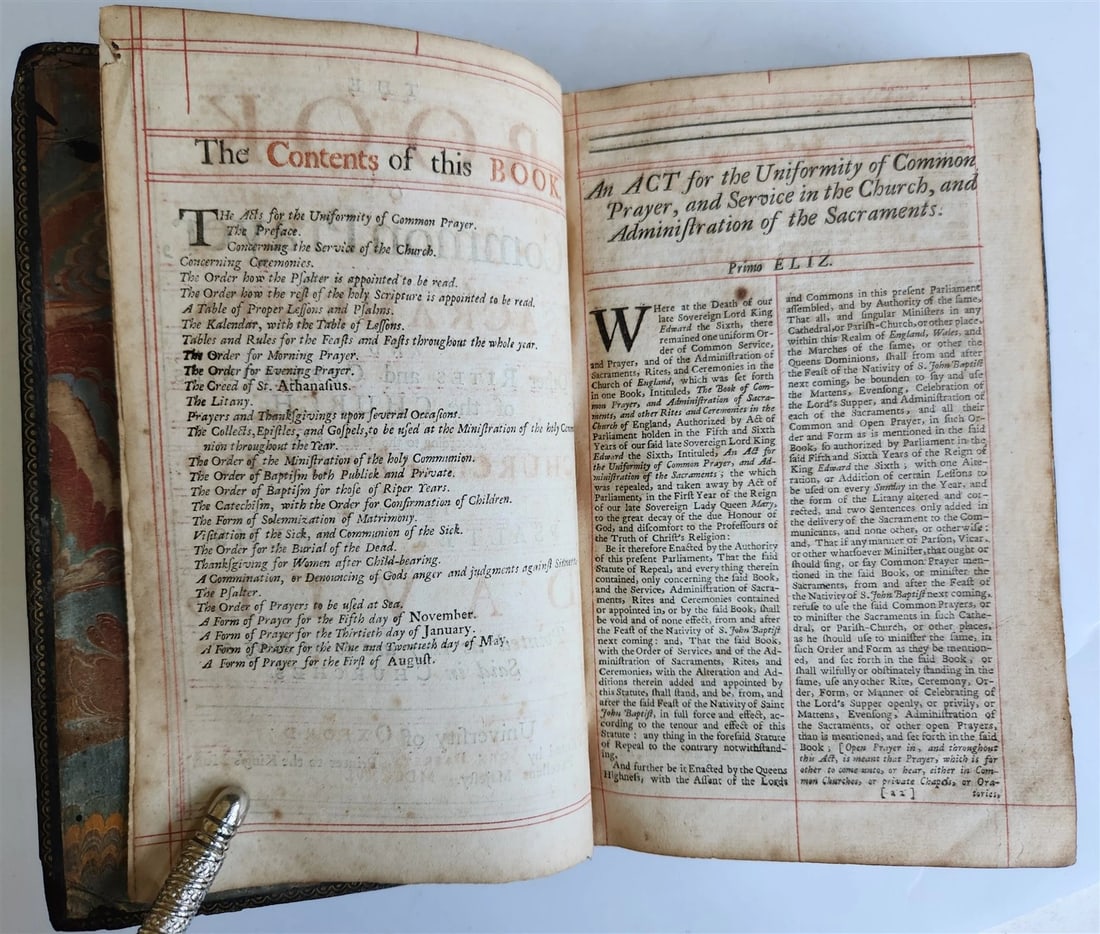 The Contents of this BOOK
THe Acts for the Uniformity of Common Prayer.
The Preface.
Concerning the Service of the Church.
Concerning Ceremonies.
The Order how the Pſalter is appointed to be read.
The Order how the reſt of the holy Scripture is appointed to be read.
A Table of Proper Leſſons and Pſalms.
The Kalendar, with the Table of Leſſons.
Tables and Rules for the Feaſts and Faſts throughout the whole year.
The Order for Morning Prayer.
The Order for Evening Prayer.
The Creed of St. Athanaſius.
The Litany.
Prayers and Thankſgivings upon ſeveral Occaſions.
The Collects, Epiſtles, and Goſpels, to be uſed at the Miniſtration of the holy
nion throughout the Year.
The Order of the Miniſtration of the holy Communion.
The Order of Baptiſm both Publick and Private.
The Order of Baptiſm for thoſe of Riper Years.
The Catechiſm, with the Order for Confirmation of Children.
The Form of Solemnization of Matrimony.
Viſitation of the Sick, and Communion of the Sick.
The Order for the Burial of the Dead.
Thankſgiving for Women after Child-bearing.
A Commination, or Denouncing of Gods anger and judgments againſt
The Pſalter.
The Order of Prayers to be uſed at Sea.
A Form of Prayer for the Fifth day of November.
A Form of Prayer for the Thirtieth day of January.
A Form of Prayer for the Nine and Twentieth day of May.
A Form of Prayer for the Firſt of Auguſt.
An ACT for the Uniformity of Common
Prayer, and Service in the Church, and
Adminiſtration of the Sacraments.
Primo ELIZ.
WHere at the Death of our
late Sovereign Lord King
Edward the Sixth, there
remained one uniform Or-
der of Common Service,
and Prayer, and of the Adminiſtration of
Sacraments, Rites, and Ceremonies in the
Church of England, which was ſet forth
in one Book, Intituled, The Book of Com-
mon Prayer, and Adminiſtration of Sacra-
ments, and other Rites and Ceremonies in the
Church of England, Authorized by Act of
Parliament holden in the Fifth and Sixth
Years of our ſaid late Sovereign Lord King
Edward the Sixth, Intituled, An Act for
the Uniformity of Common Prayer, and Ad-
miniſtration of the Sacraments; the which
was repealed, and taken away by Act of
Parliament, in the Firſt Year of the Reign
of our late Sovereign Lady Queen Mary,
to the great decay of the due Honour of
God, and diſcomfort to the Profeſſours of
the Truth of Chriſt's Religion:
Be it therefore Enacted by the Authority
of this preſent Parliament, That the ſaid
Statute of Repeal, and every thing therein
contained, only concerning the ſaid Book,
and the Service, Adminiſtration of Sacra-
ments, Rites and Ceremonies contained
or appointed in, or by the ſaid Book, ſhall
be void and of none effect, from and after
the Feaſt of the Nativity of S. John Baptiſt
next coming: and, That the ſaid Book,
with the Order of Service, and of the Ad-
miniſtration of Sacraments, Rites, and
Ceremonies, with the Alteration and Ad-
ditions therein added and appointed by
this Statute, ſhall ſtand, and be, from, and
after the ſaid Feaſt of the Nativity of Saint
John Baptiſt, in full force and effect, ac-
cording to the tenour and effect of this
Statute: any thing in the foreſaid Statute
of Repeal to the contrary notwithſtand-
ing.
And further be it Enacted by the Queens
Highneſs, with the Aſſent of the Lords
and Commons in this preſent Parliament
aſſembled, and by Authority of the ſame,
That all, and ſingular Miniſters in any
Cathedral, or Pariſh-Church, or other place.
within this Realm of England, Wales, and
the Marches of the ſame, or other the
Queens Dominions, ſhall from and after
the Feaſt of the Nativity of S. John Baptiſt
next coming, be bounden to ſay and uſe
the Mattens, Evenſong, Celebration of
the Lord's Supper, and Adminiſtration of
each of the Sacraments, and all their
Common and Open Prayer, in ſuch Or-
der and Form as is mentioned in the ſaid
Book, ſo authorized by Parliament in the
ſaid Fifth and Sixth Years of the Reign of
King Edward the Sixth; with one Alte-
ration, or Addition of certain Leſſons to
be uſed on every Sunday in the Year, and
the form of the Litany altered and cor-
rected, and two Sentences only added in
the delivery of the Sacrament to the Com-
municants, and none other, or otherwiſe:
and, That if any manner of Parſon, Vicar.
or other whatſoever Miniſter, that ought or
ſhould ſing, or ſay Common Prayer men-
tioned in the ſaid Book, or miniſter the
Sacraments, from and after the Feaſt of
the Nativity of S. John Baptiſt next coming,
refuſe to uſe the ſaid Common Prayers, or
to miniſter the Sacraments in ſuch Cathe-
dral, or Pariſh-Church, or other places,
as he ſhould uſe to miniſter the ſame, in
ſuch Order and Form as they be mention-
ed, and ſet forth in the ſaid Book; or
ſhall wilfully or obſtinately ſtanding in the
ſame, uſe any other Rite, Ceremony, Or-
der, Form, or Manner of Celebrating of
the Lord's Supper openly, or privily, or
Mattens, Evenſong, Adminiſtration of
the Sacraments, or other open Prayers,
than is mentioned, and ſet forth in the ſaid
Book; [Open Prayer in, and throughout
this Act, is meant that Prayer, which is for
other to come unto, or hear, either in Com-
mon Churches, or private Chapels, or Ora-
[a2] tories,